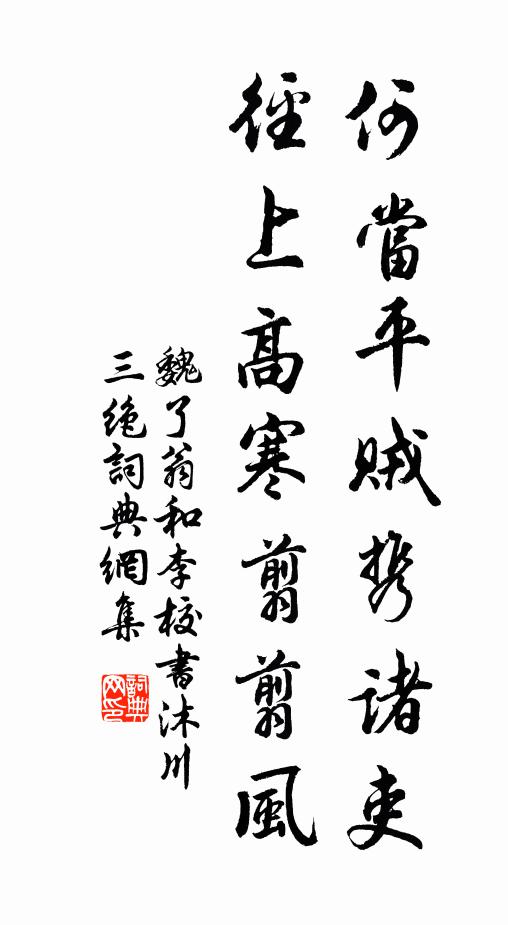 何當平賊携諸吏
徑上高寒翦翦風
魏了翁和李校書沐川
三絶詞典網集
詞典网印